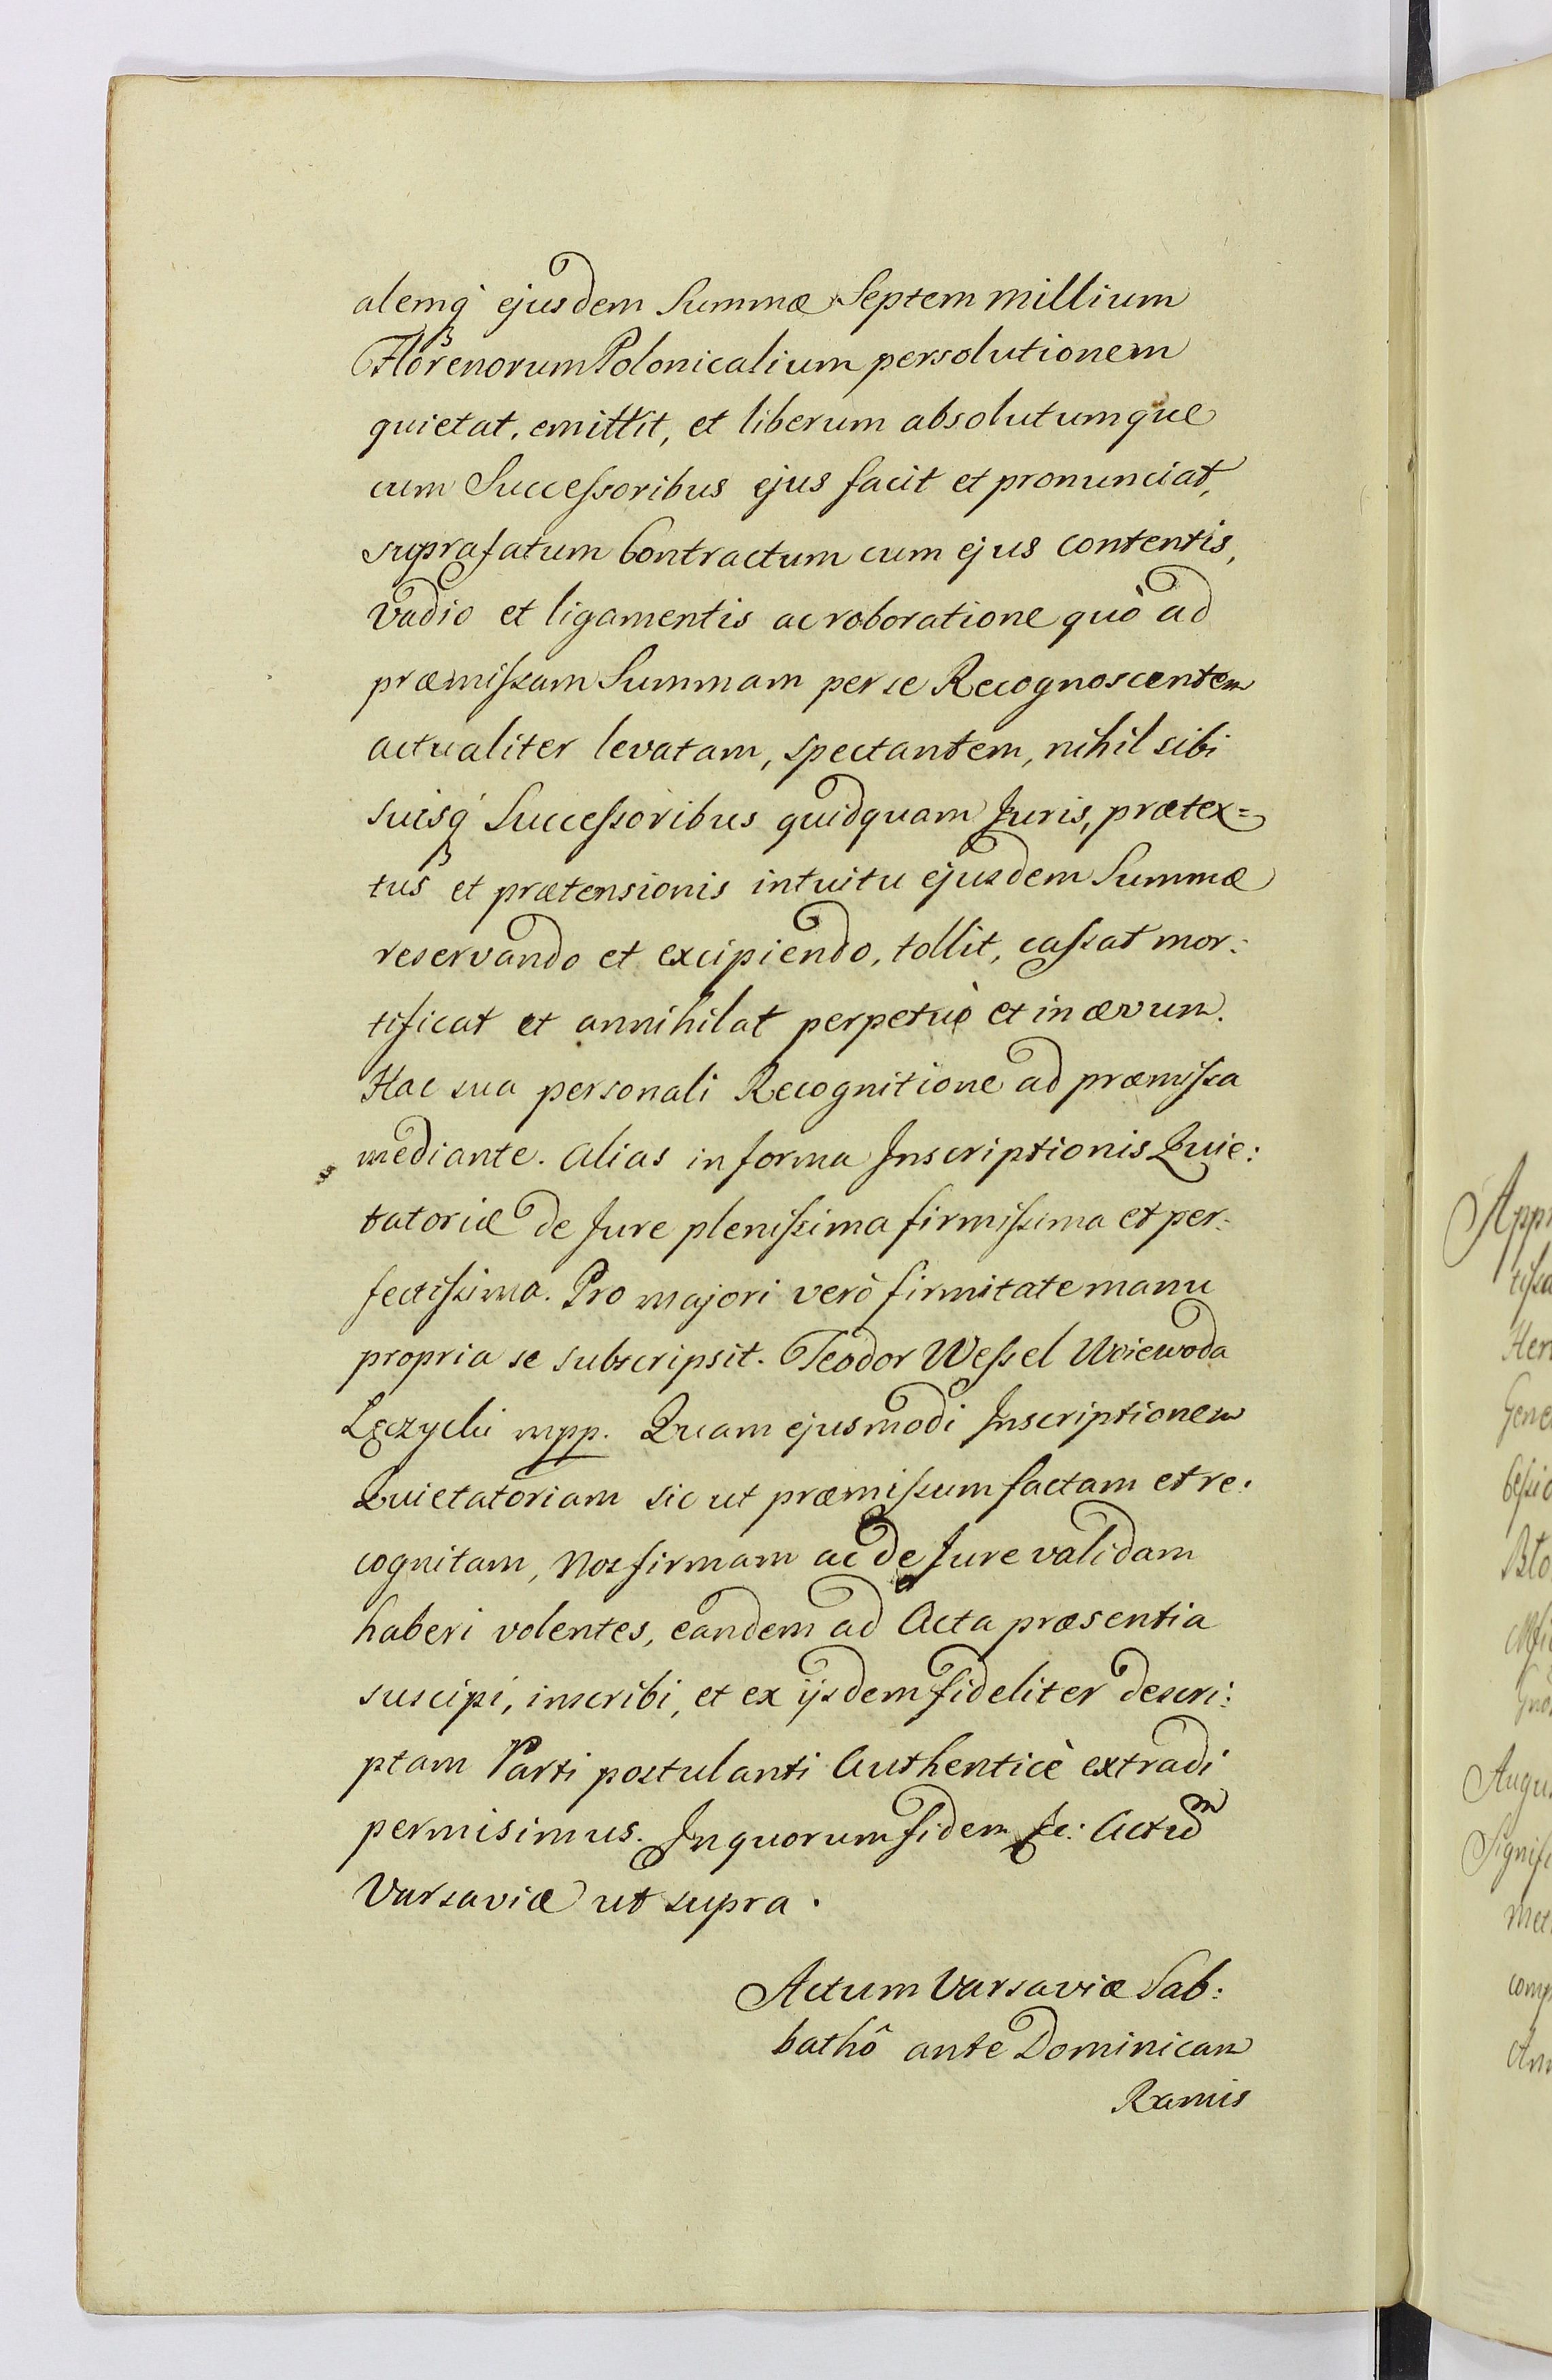 alemq́ ejusdem Summæ Septem millium
Florenorum Polonicalium persolutionem
quietat, emittit, et liberum absolutumque
cum Succeſsoribus ejus facit et pronunciat,
suprafatum Contractum cum ejus contentis,
vadio et ligamentis ac roboratione quò ad
præmiſsam Summam per se Recognoscentem
actualiter levatam, spectantem, nihil sibi
suisq́ Succeſsoribus quidquam Juris, prætex=
tus et prætensionis intuitu ejusdem Summæ
reservando et excipiendo, tollit, caſsat mor:
tificat et annihilat perpetuò et in ævum.
Hac sua personali Recognitione ad præmiſsa
mediante. Alias in forma Inscriptionis Quie:
tatoriæ de Jure pleniſsima firmiſsima et per:
fectiſsima. Pro majori verò firmitate manu
propria se subscripsit. Teodor Weſsel Woiewoda
Łęczycki mpp. Quam ejusmodi Inscriptionem
Quietatoriam sic ut præmiſsum factam et re:
cognitam, Nos firmam ac de Jure validam
haberi volentes, eandem ad Acta præsentia
suscipi, inscribi, et ex ijsdem fideliter descri:
ptam Parti postulanti Authenticè extradi
permisimus. In quorum fidem &c: Actũm
Varsaviæ ut supra.
Actum Varsaviæ Sab:
bathô ante Dominicam
Ramis